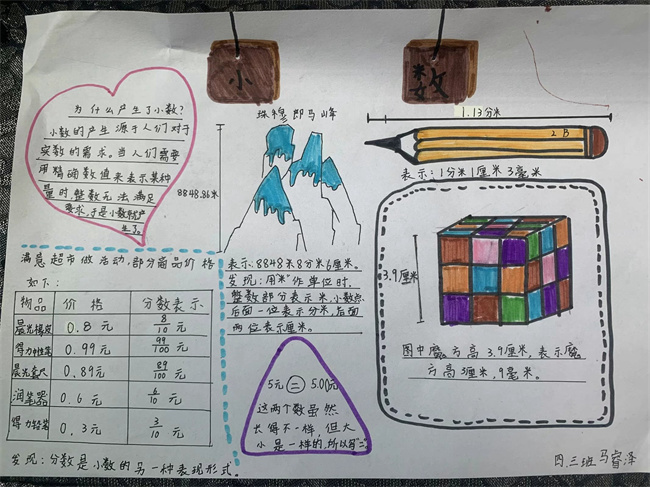 小 数
为什么产生了小数?
小数的产生源于人们对于
实数的需求。当人们需要
用精确数值来表示某种
量时,整数无法满足
要求,于是小数就产
生了。
珠穆即马峰
8848.86米
表示:8848米8分米6厘米。
发现:用"米"作单位时,
整数部分表示米,小数点
后面一位表示分米,后面
两位表示厘米。
1.13分米
2B
表示:1分米1厘米3毫米
3.9厘米
图中魔方高3.9厘米,表示魔
方高3厘米,9毫米。
满意超市做活动,部分商品价格
如下:
物品 价格 分数表示
晨光橡皮 0.8元 8/10元
得力中性笔 0.99元 99/100元
晨光套尺 0.89元 89/100元
润笔器 0.6元 6/10元
得力铅笔 0.3元 3/10元
发现:分数是小数的另一种表现形式.
5元=5.00元
这两个数虽然
长得不一样,但大
小是一样的,所以写"="
四.三班 马睿泽